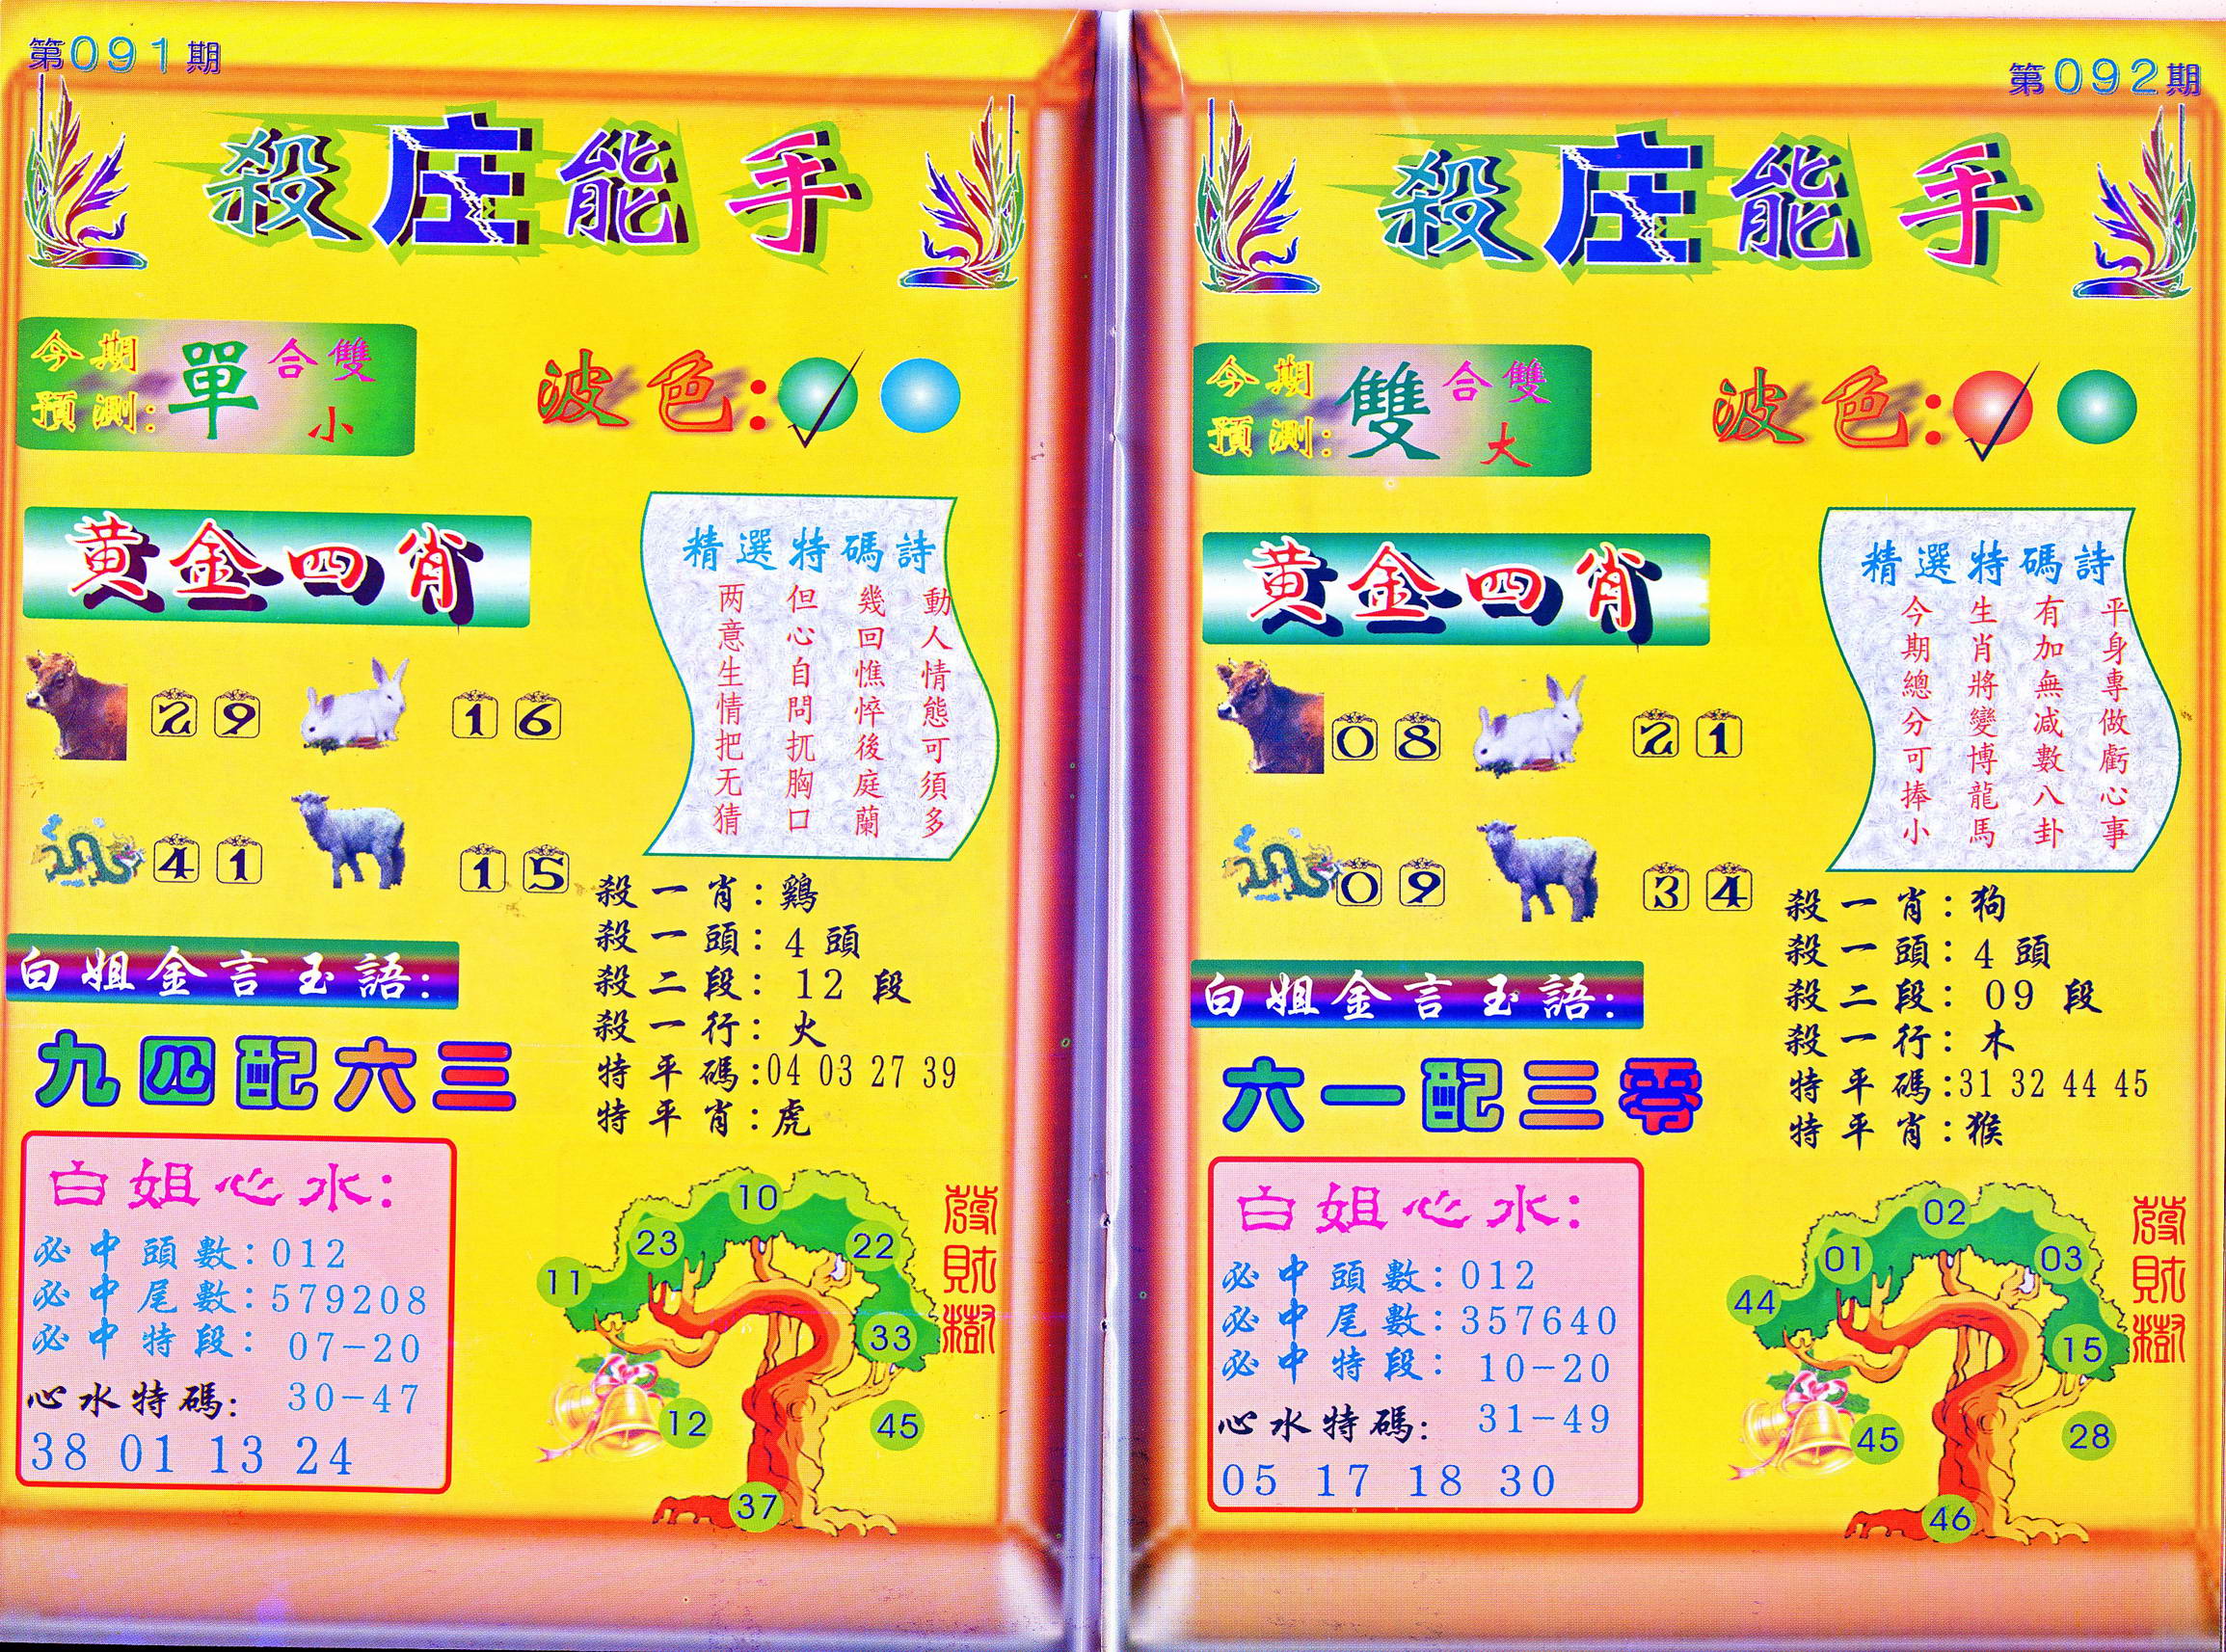 第091期
殺庄能手
今期預測:單 合雙 小
波色:
黃金四肖
29 16
41 15
精選特碼詩
動人情態可須多
幾回憔悴後庭蘭
但心自問扤胸口
两意生情把无猜
殺一肖:鷄
殺一頭:4頭
殺二段:12段
殺一行:火
特平碼:04 03 27 39
特平肖:虎
白姐金言玉語:
九四配六三
白姐心水:
必中頭數:012
必中尾數:579208
必中特段:07-20
30-47
心水特碼:
38 01 13 24
發財樹
10
23
22
11
33
12
45
37
第092期
殺庄能手
今期預測:雙 合雙 大
波色:
黃金四肖
08 21
09 34
精選特碼詩
平身專做虧心事
有加無减數八卦
生肖將變博龍馬
今期總分可捧小
殺一肖:狗
殺一頭:4頭
殺二段:09段
殺一行:木
特平碼:31 32 44 45
特平肖:猴
白姐金言玉語:
六一配三零
白姐心水:
必中頭數:012
必中尾數:357640
必中特段:10-20
31-49
心水特碼:
05 17 18 30
發財樹
02
01
03
44
15
45
28
46